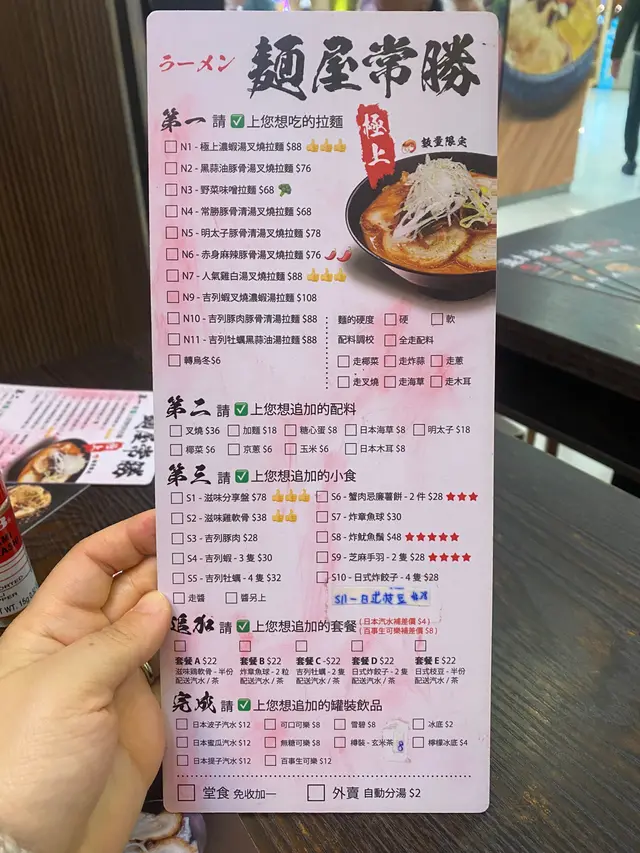 ラーメン 麵屋常勝
第一 請 ✅ 上您想吃的拉麵
極上
數量限定
N1 - 極上濃蝦湯叉燒拉麵 $88 👍👍👍
N2 - 黑蒜油豚骨湯叉燒拉麵 $76
N3 - 野菜味噌拉麵 $68 🥦
N4 - 常勝豚骨清湯叉燒拉麵 $68
N5 - 明太子豚骨清湯叉燒拉麵 $78
N6 - 赤身麻辣豚骨湯叉燒拉麵 $76 🌶🌶
N7 - 人氣雞白湯叉燒拉麵 $88 👍👍👍
N9 - 吉列蝦叉燒濃蝦湯拉麵 $108
N10 - 吉列豚肉豚骨清湯拉麵 $88
N11 - 吉列牡蠣黑蒜油湯拉麵 $88
轉烏冬$6
麵的硬度 硬 軟
配料調校 全走配料
走椰菜 走炸蒜 走蔥
走叉燒 走海草 走木耳
第二 請 ✅ 上您想追加的配料
叉燒 $36 加麵 $18 糖心蛋 $8 日本海草 $8 明太子 $18
椰菜 $6 京蔥 $6 玉米 $6 日本木耳 $8
第三 請 ✅ 上您想追加的小食
S1 - 滋味分享盤 $78 👍👍👍
S2 - 滋味雞軟骨 $38 👍👍
S3 - 吉列豚肉 $28
S4 - 吉列蝦 - 3 隻 $30
S5 - 吉列牡蠣 - 4 隻 $32
走醬 醬另上
S6 - 蟹肉忌廉薯餅 - 2 件 $28 ★★★
S7 - 炸章魚球 $30
S8 - 炸魷魚鬚 $48 ★★★★★
S9 - 芝麻手羽 - 2 隻 $28 ★★★★
S10 - 日式炸餃子 - 4 隻 $28
S11 - 日式枝豆 $28
追加 請 ✅ 上您想追加的套餐 (日本汽水補差價 $4)
(百事生可樂補差價 $8)
套餐 A $22 套餐 B $22 套餐 C -$22 套餐 D $22 套餐 E $22
滋味鶏軟骨 - 半份 炸章魚球 - 2 粒 吉列牡蠣 - 2 隻 日式炸餃子 - 2 隻 日式枝豆 - 半份
配送汽水 / 茶 配送汽水 / 茶 配送汽水 / 茶 配送汽水 / 茶 配送汽水 / 茶
完成 請 ✅ 上您想追加的罐裝飲品
日本波子汽水 $12 可口可樂 $8 雪碧 $8 冰底 $2
日本蜜瓜汽水 $12 無糖可樂 $8 樽裝 - 玄米茶 8 檸檬冰底 $4
日本提子汽水 $12 百事生可樂 $12
堂食 免收加一 外賣 自動分湯 $2